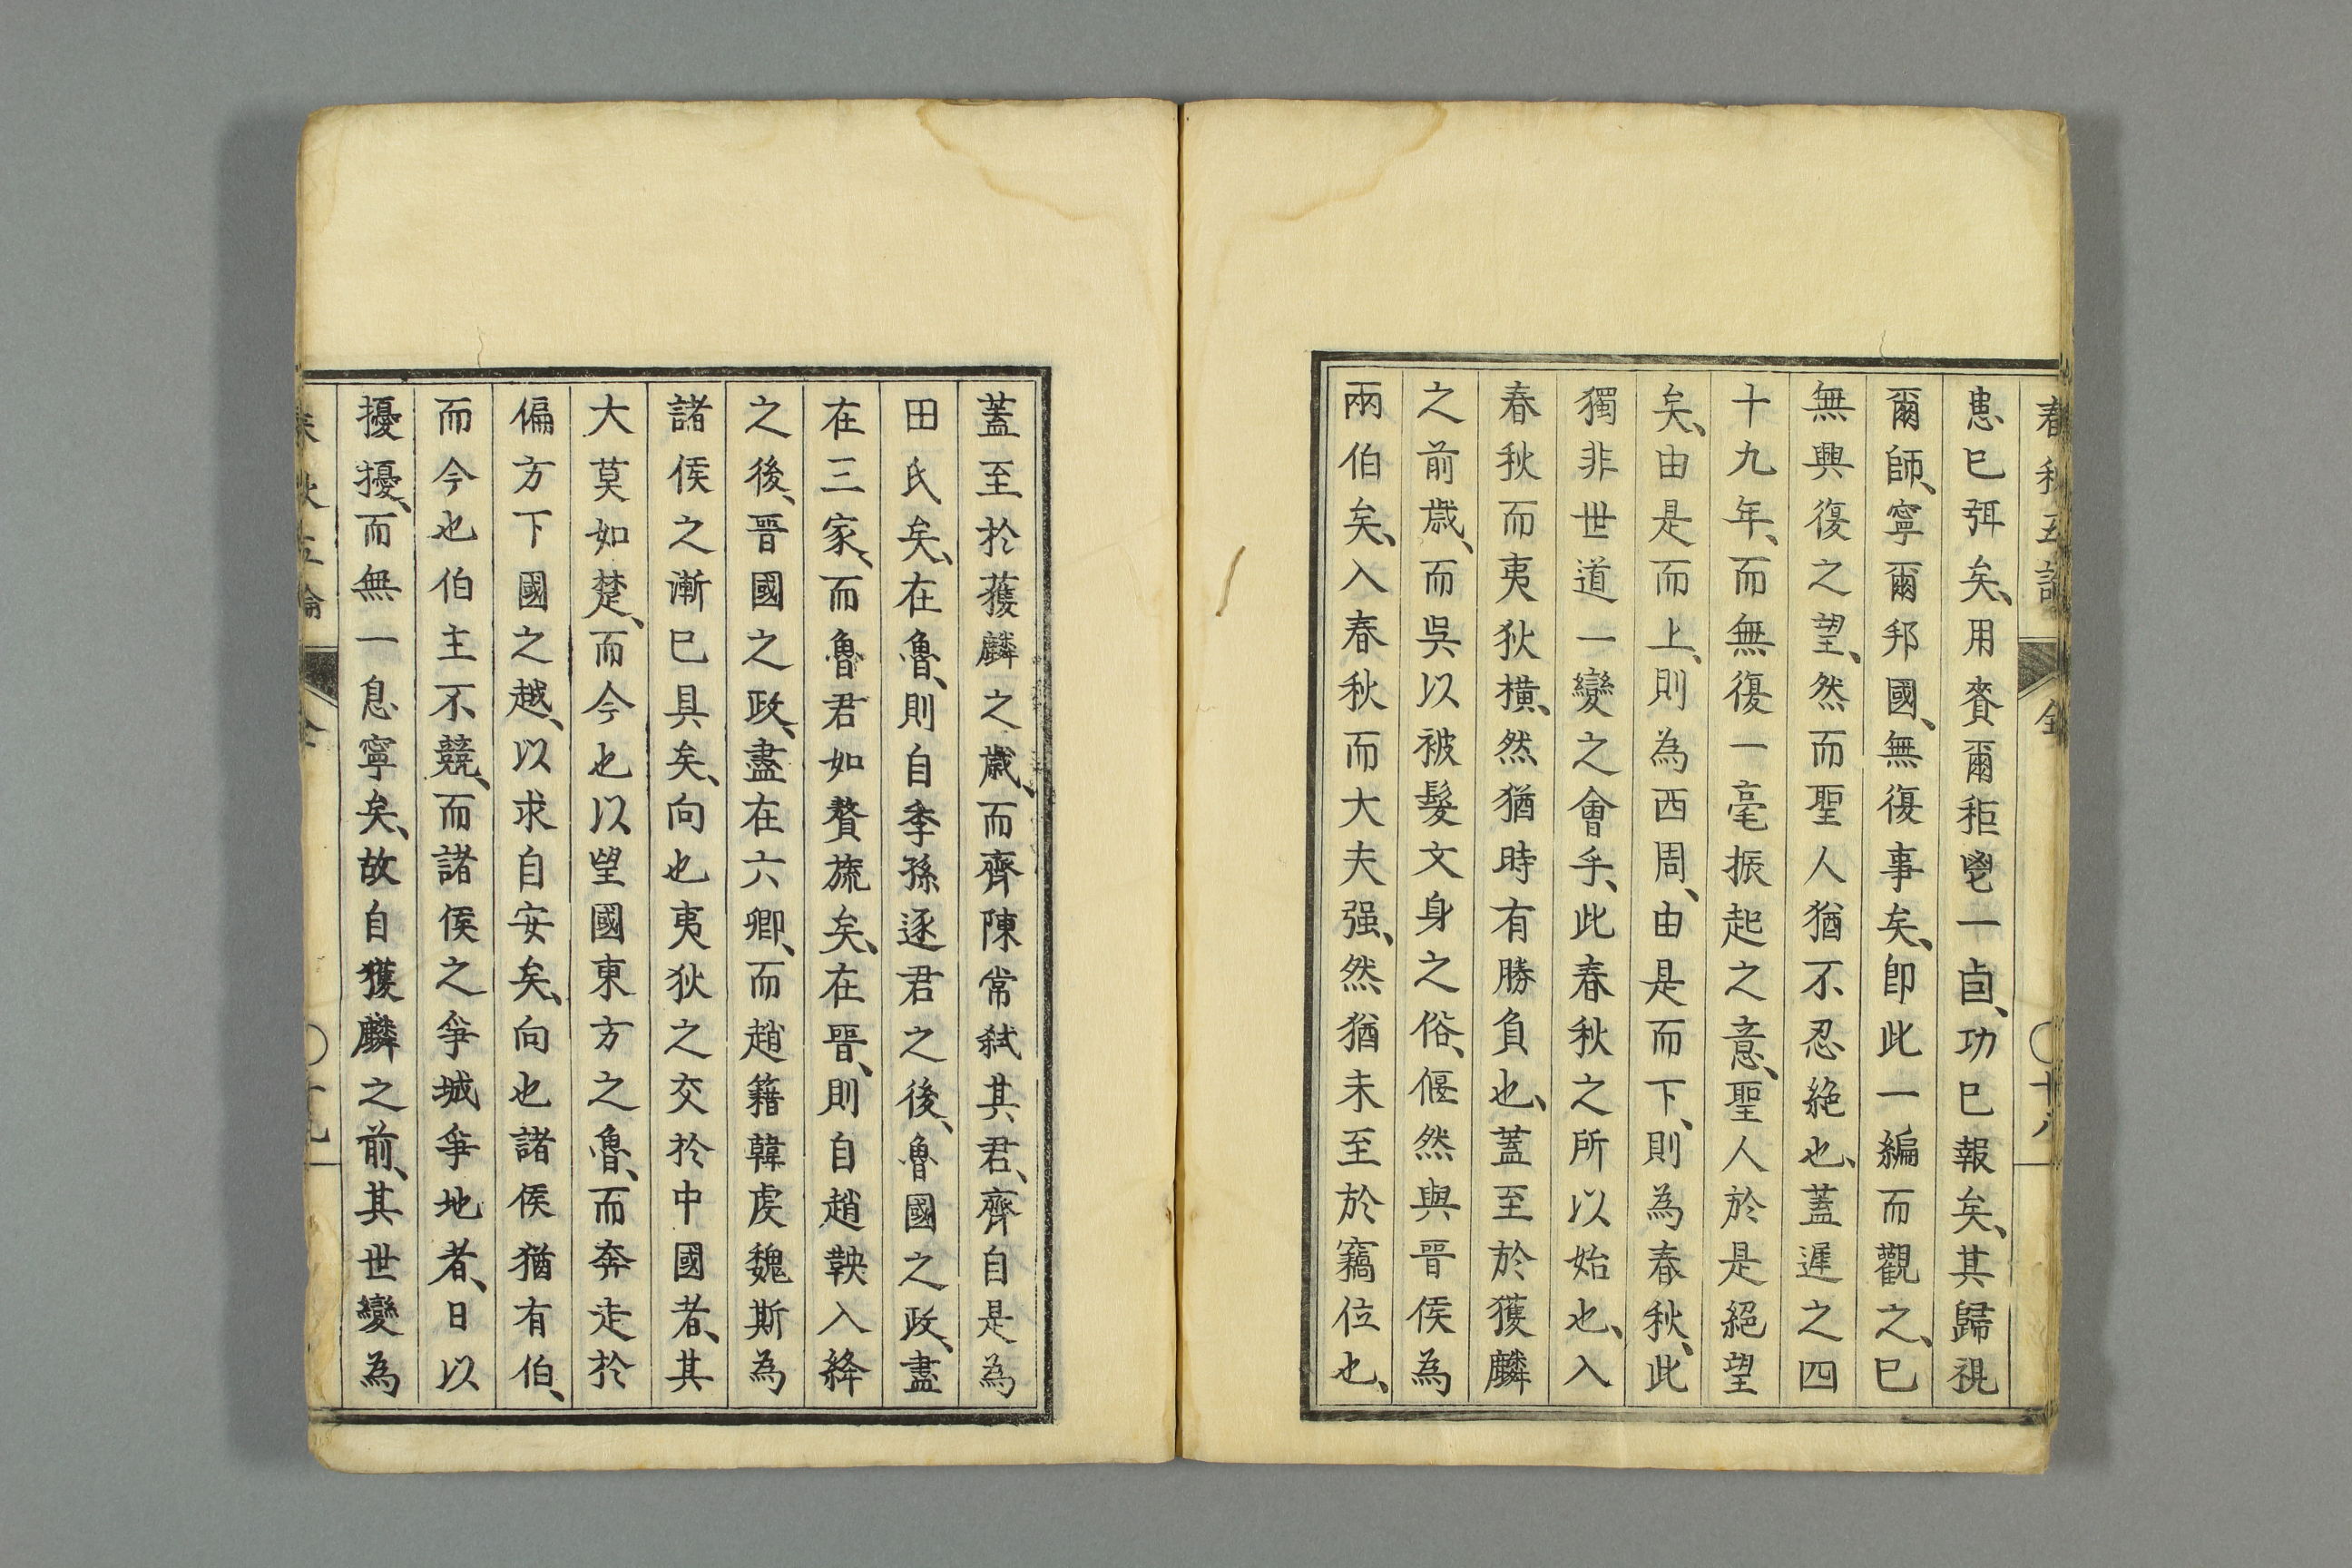 春秋五論 全 〇十八
患已弭矣、用賚爾秬鬯一卣、功已報矣、其歸視
爾師、寧爾邦國、無復事矣、即此一編而觀之、已
無興復之望、然而聖人猶不忍絶也、蓋遲之四
十九年、而無復一毫振起之意、聖人於是絕望
矣、由是而上、則為西周、由是而下、則為春秋、此
獨非世道一變之會乎、此春秋之所以始也、入
春秋而夷狄橫、然猶時有勝負也、蓋至於獲麟
之前歲、而吳以被髮文身之俗、偃然與晉侯為
兩伯矣、入春秋而大夫强、然猶未至於竊位也、
蓋至於獲麟之歲、而齊陳常弒其君、齊自是為
田氏矣、在魯、則自季孫逐君之後、魯國之政、盡
在三家、而魯君如贅旒矣、在晉、則自趙鞅入絳
之後、晉國之政、盡在六卿、而趙籍韓虔魏斯為
諸侯之漸已具矣、向也夷狄之交於中國者、其
大莫如楚、而今也以望國東方之魯、而奔走於
偏方下國之越、以求自安矣、向也諸侯猶有伯、
而今也伯主不競、而諸侯之爭城爭地者、日以
擾擾、而無一息寧矣、故自獲麟之前、其世變為
春秋五論 全 〇十九